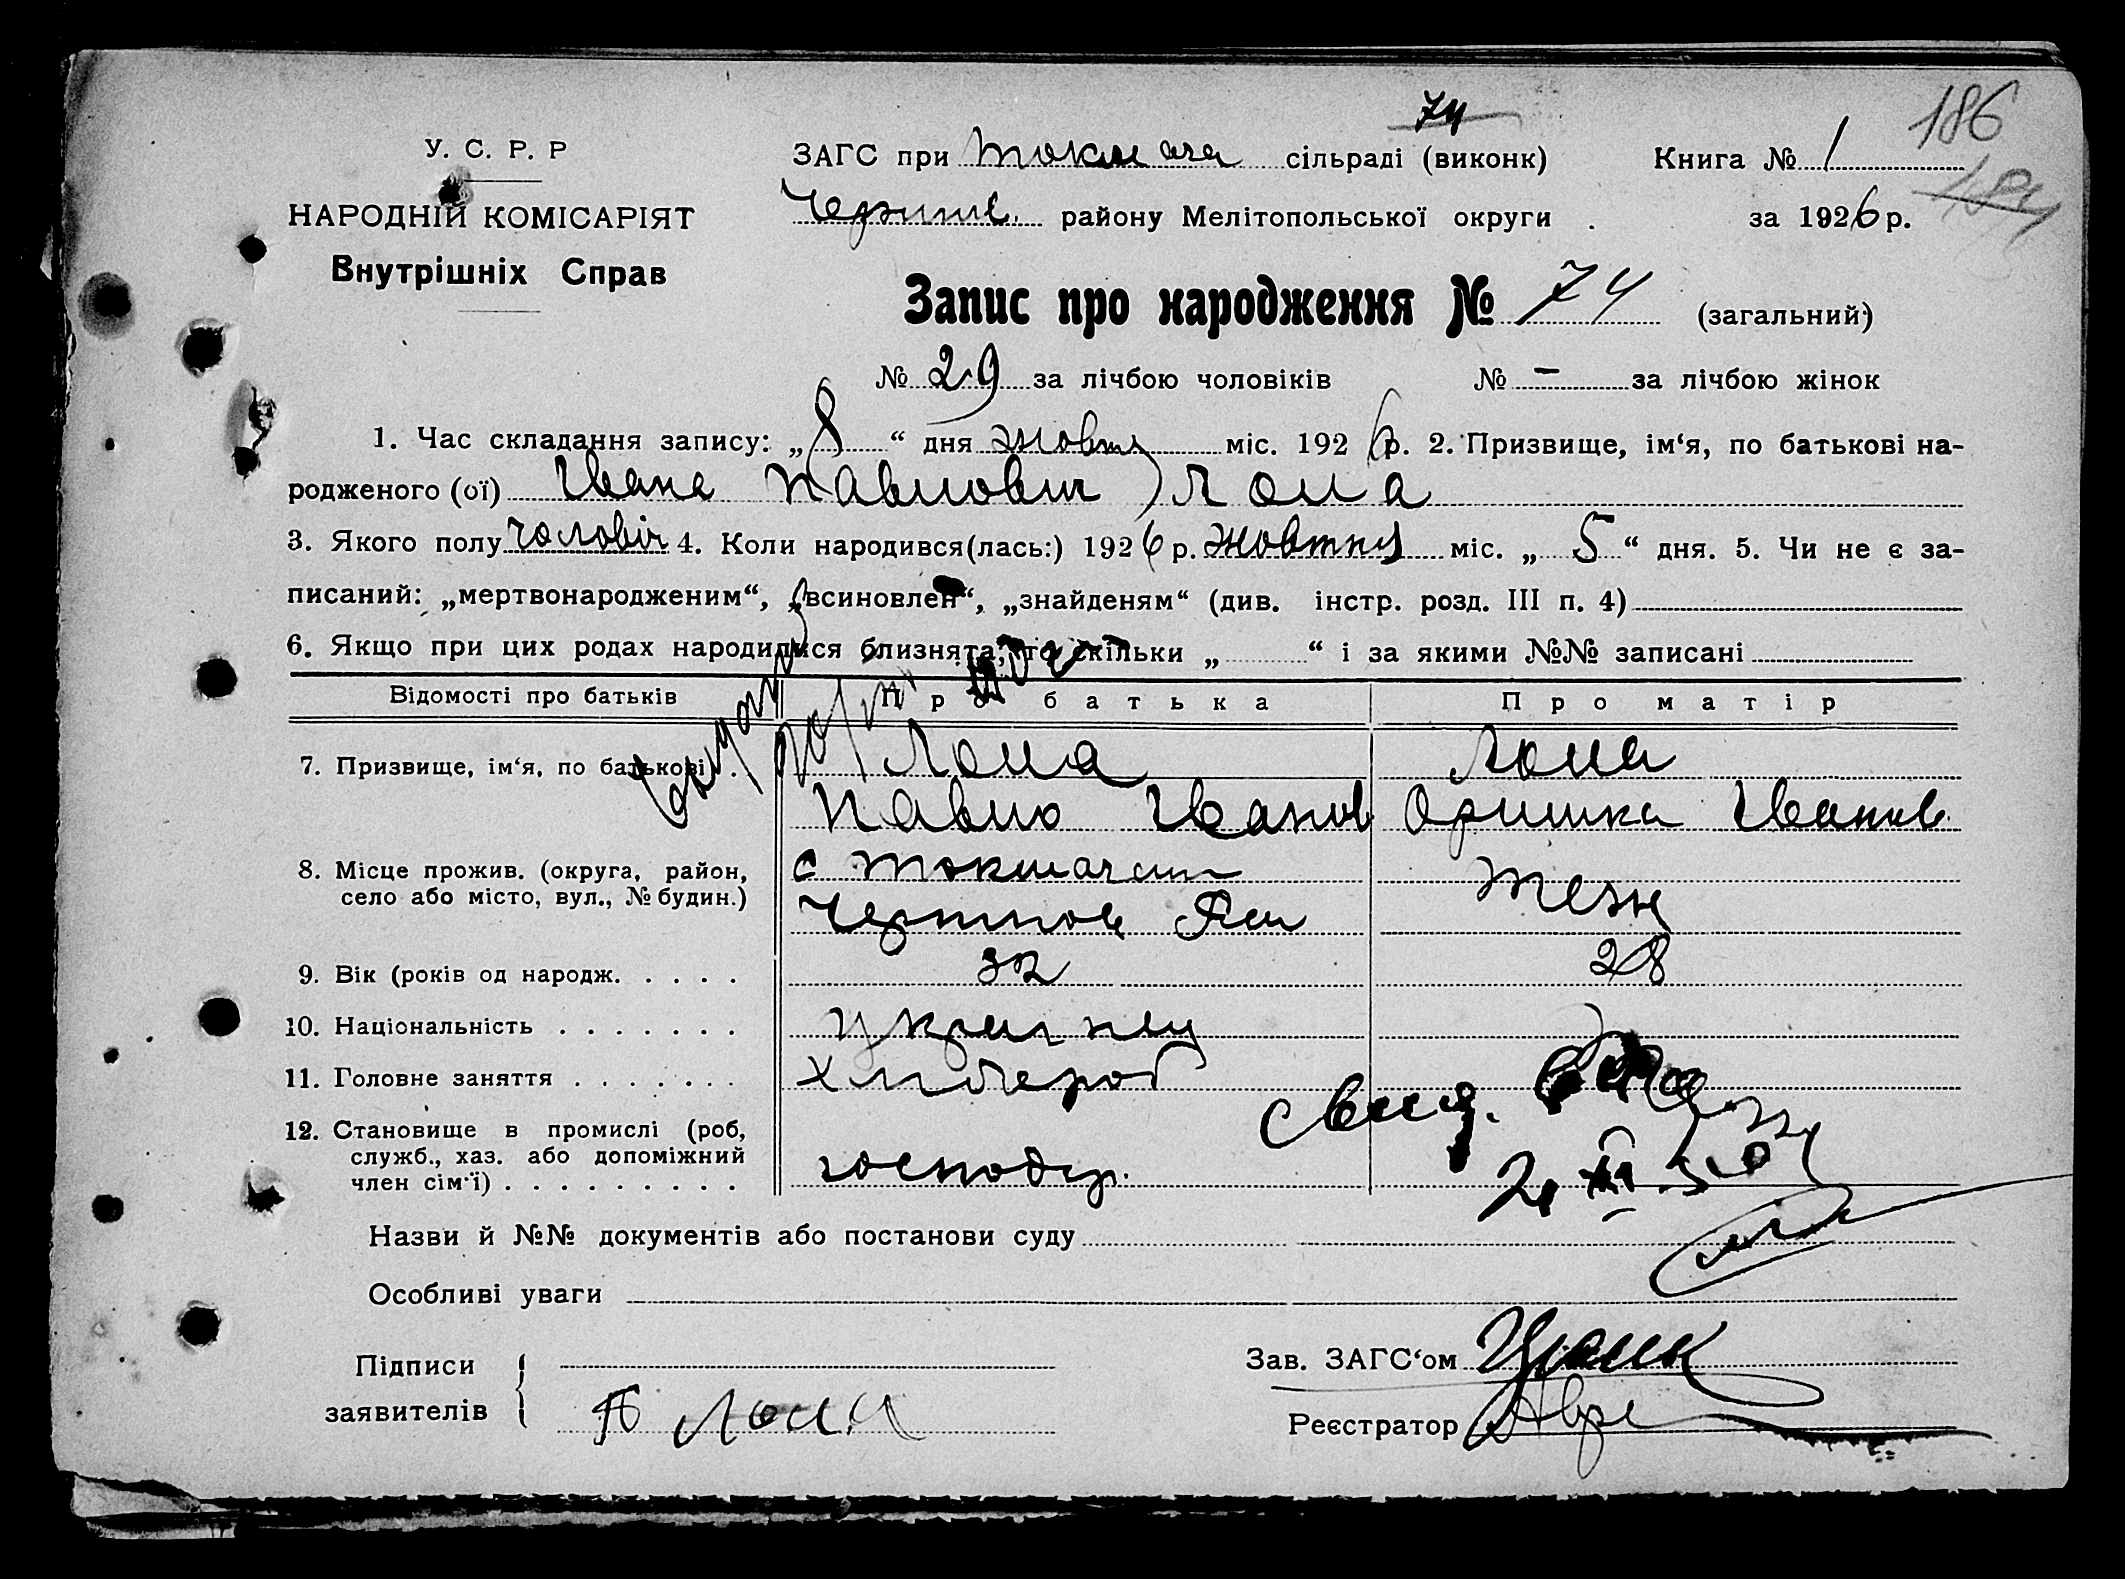 74
186
У. С. Р. Р
ЗАГС при Токмача сільраді (виконк) Книга № 1
184
НАРОДНІЙ КОМІСАРІЯТ
району Мелітопольської округи за 1926 р.
Внутрішніх Справ
Запис про народження № 74 (загальний)
№ 29 за лічбою чоловіків № - за лічбою жінок
1. Час складання запису: „8“ дня жовтн міс. 1926 р. 2. Призвище, ім‘я, по батькові на-
родженого (ої) Іване Павлович Лола
3. Якого полу чоловіч 4. Коли народився(лась:) 1926 р. жовтня міс. „5“ дня. 5. Чи не є за-
писаний: „мертвонародженим“, „всиновлен“, „знайденям“ (див. інстр. розд. III п. 4)
6. Якщо при цих родах народилися близнята, то скільки „ “ і за якими №№ записані
Відомості про батьків Про батька Про матір
7. Призвище, ім‘я, по батькові . Лола Лола
Павло Іванов Оришка Іванів.
8. Місце прожив. (округа, район, с Токмачип
село або місто, вул., № будин.) Тезн
9. Вік (років од народж. . . . . 32 28
10. Національність . . . . . . . українец
11. Головне заняття . . . . . . . хлібероб
свид.
12. Становище в промислі (роб,
служб., хаз. або допоміжний господар.
член сім‘ї) . . . . . . . . .
Назви й №№ документів або постанови суду
Особливі уваги
Підписи Зав. ЗАГС‘ом
заявителів П Лола Реєстратор